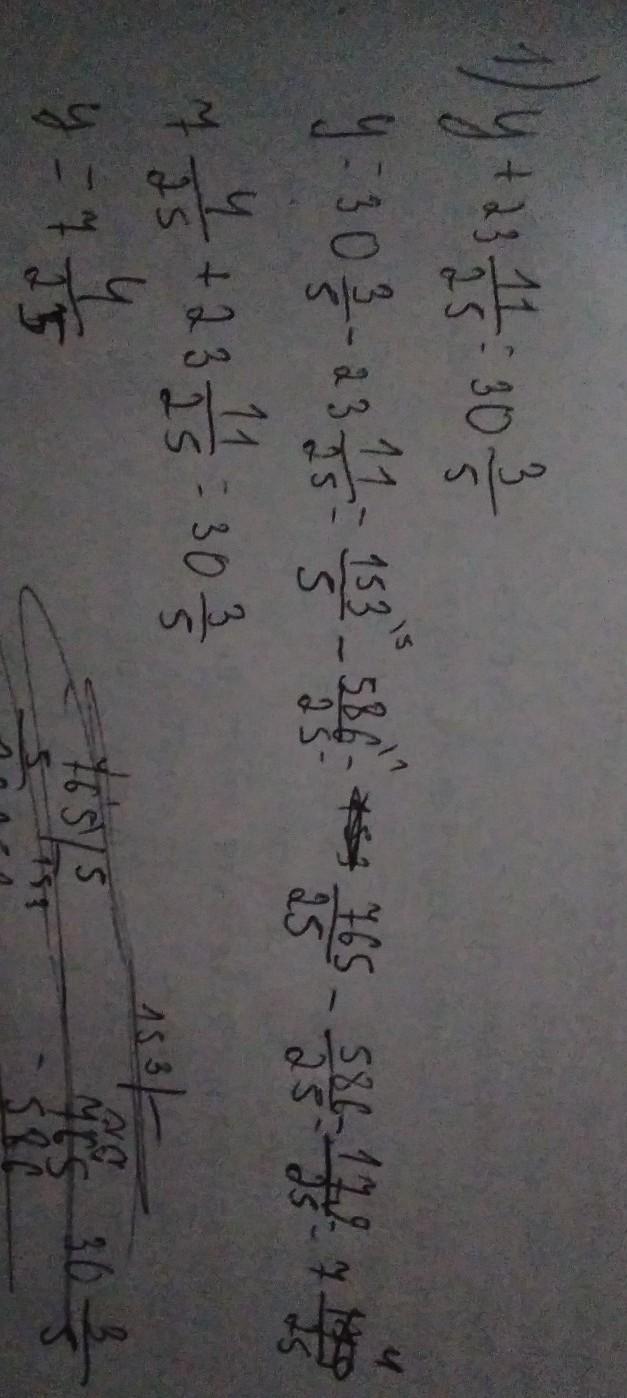 1) y + 23 11/25 = 30 3/5
y = 30 3/5 - 23 11/25 = 153/5 \5 - 586/25 \1 = 765/25 - 586/25 = 179/25 = 7 4/25
7 4/25 + 23 11/25 = 30 3/5
y = 7 4/25
153
765 | 5
5 | 153
765
- 586
30 3/5